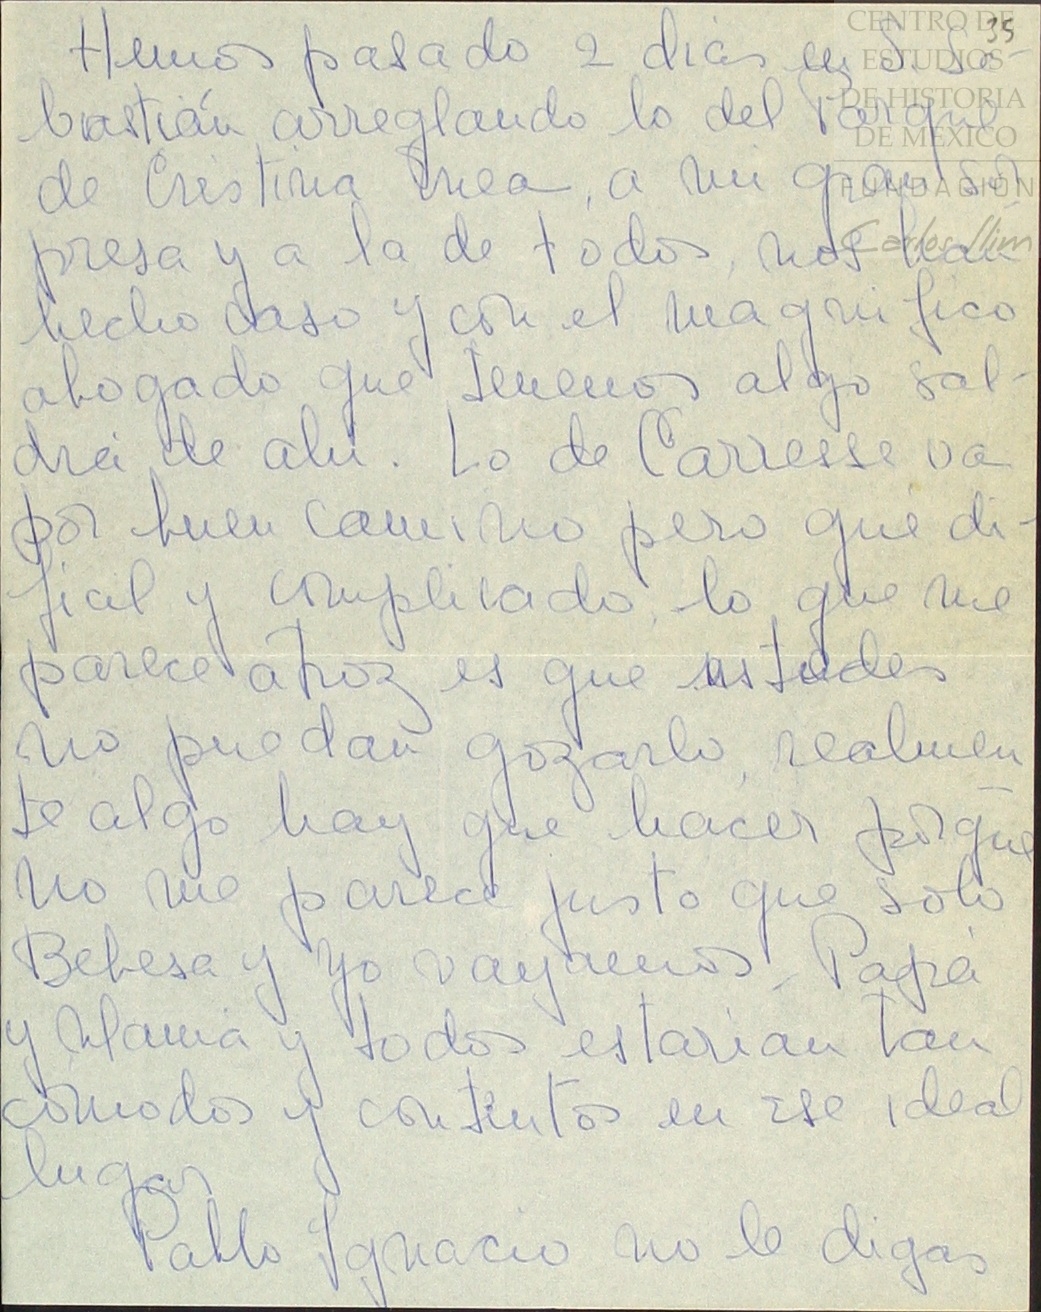 35
CENTRO DE
ESTUDIOS
DE HISTORIA
DE MÉXICO
FUNDACIÓN
Carlos Slim
Hemos pasado 2 días en S. Se-
bastián arreglando lo del Parque
de Cristina Enea, a mi gran sor
presa y a la de todos, nos han
hecho caso y con el magnifico
abogado que tenemos algo sal-
drá de ahi. Lo de Carresse va
por buen camino pero qué di-
ficil y complicado, lo que me
parece atroz es que ustedes
no puedan gozarlo, realmen
te algo hay que hacer porque
no me parece justo que solo
Bebesa y yo vayamos. Papá
y Mamá y todos estarian tan
cómodos y contentos en ese ideal
lugar
Pablo Ignacio no le digas